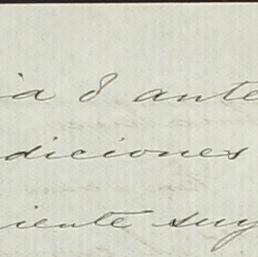 ia 8 ante
diciones
iente suy